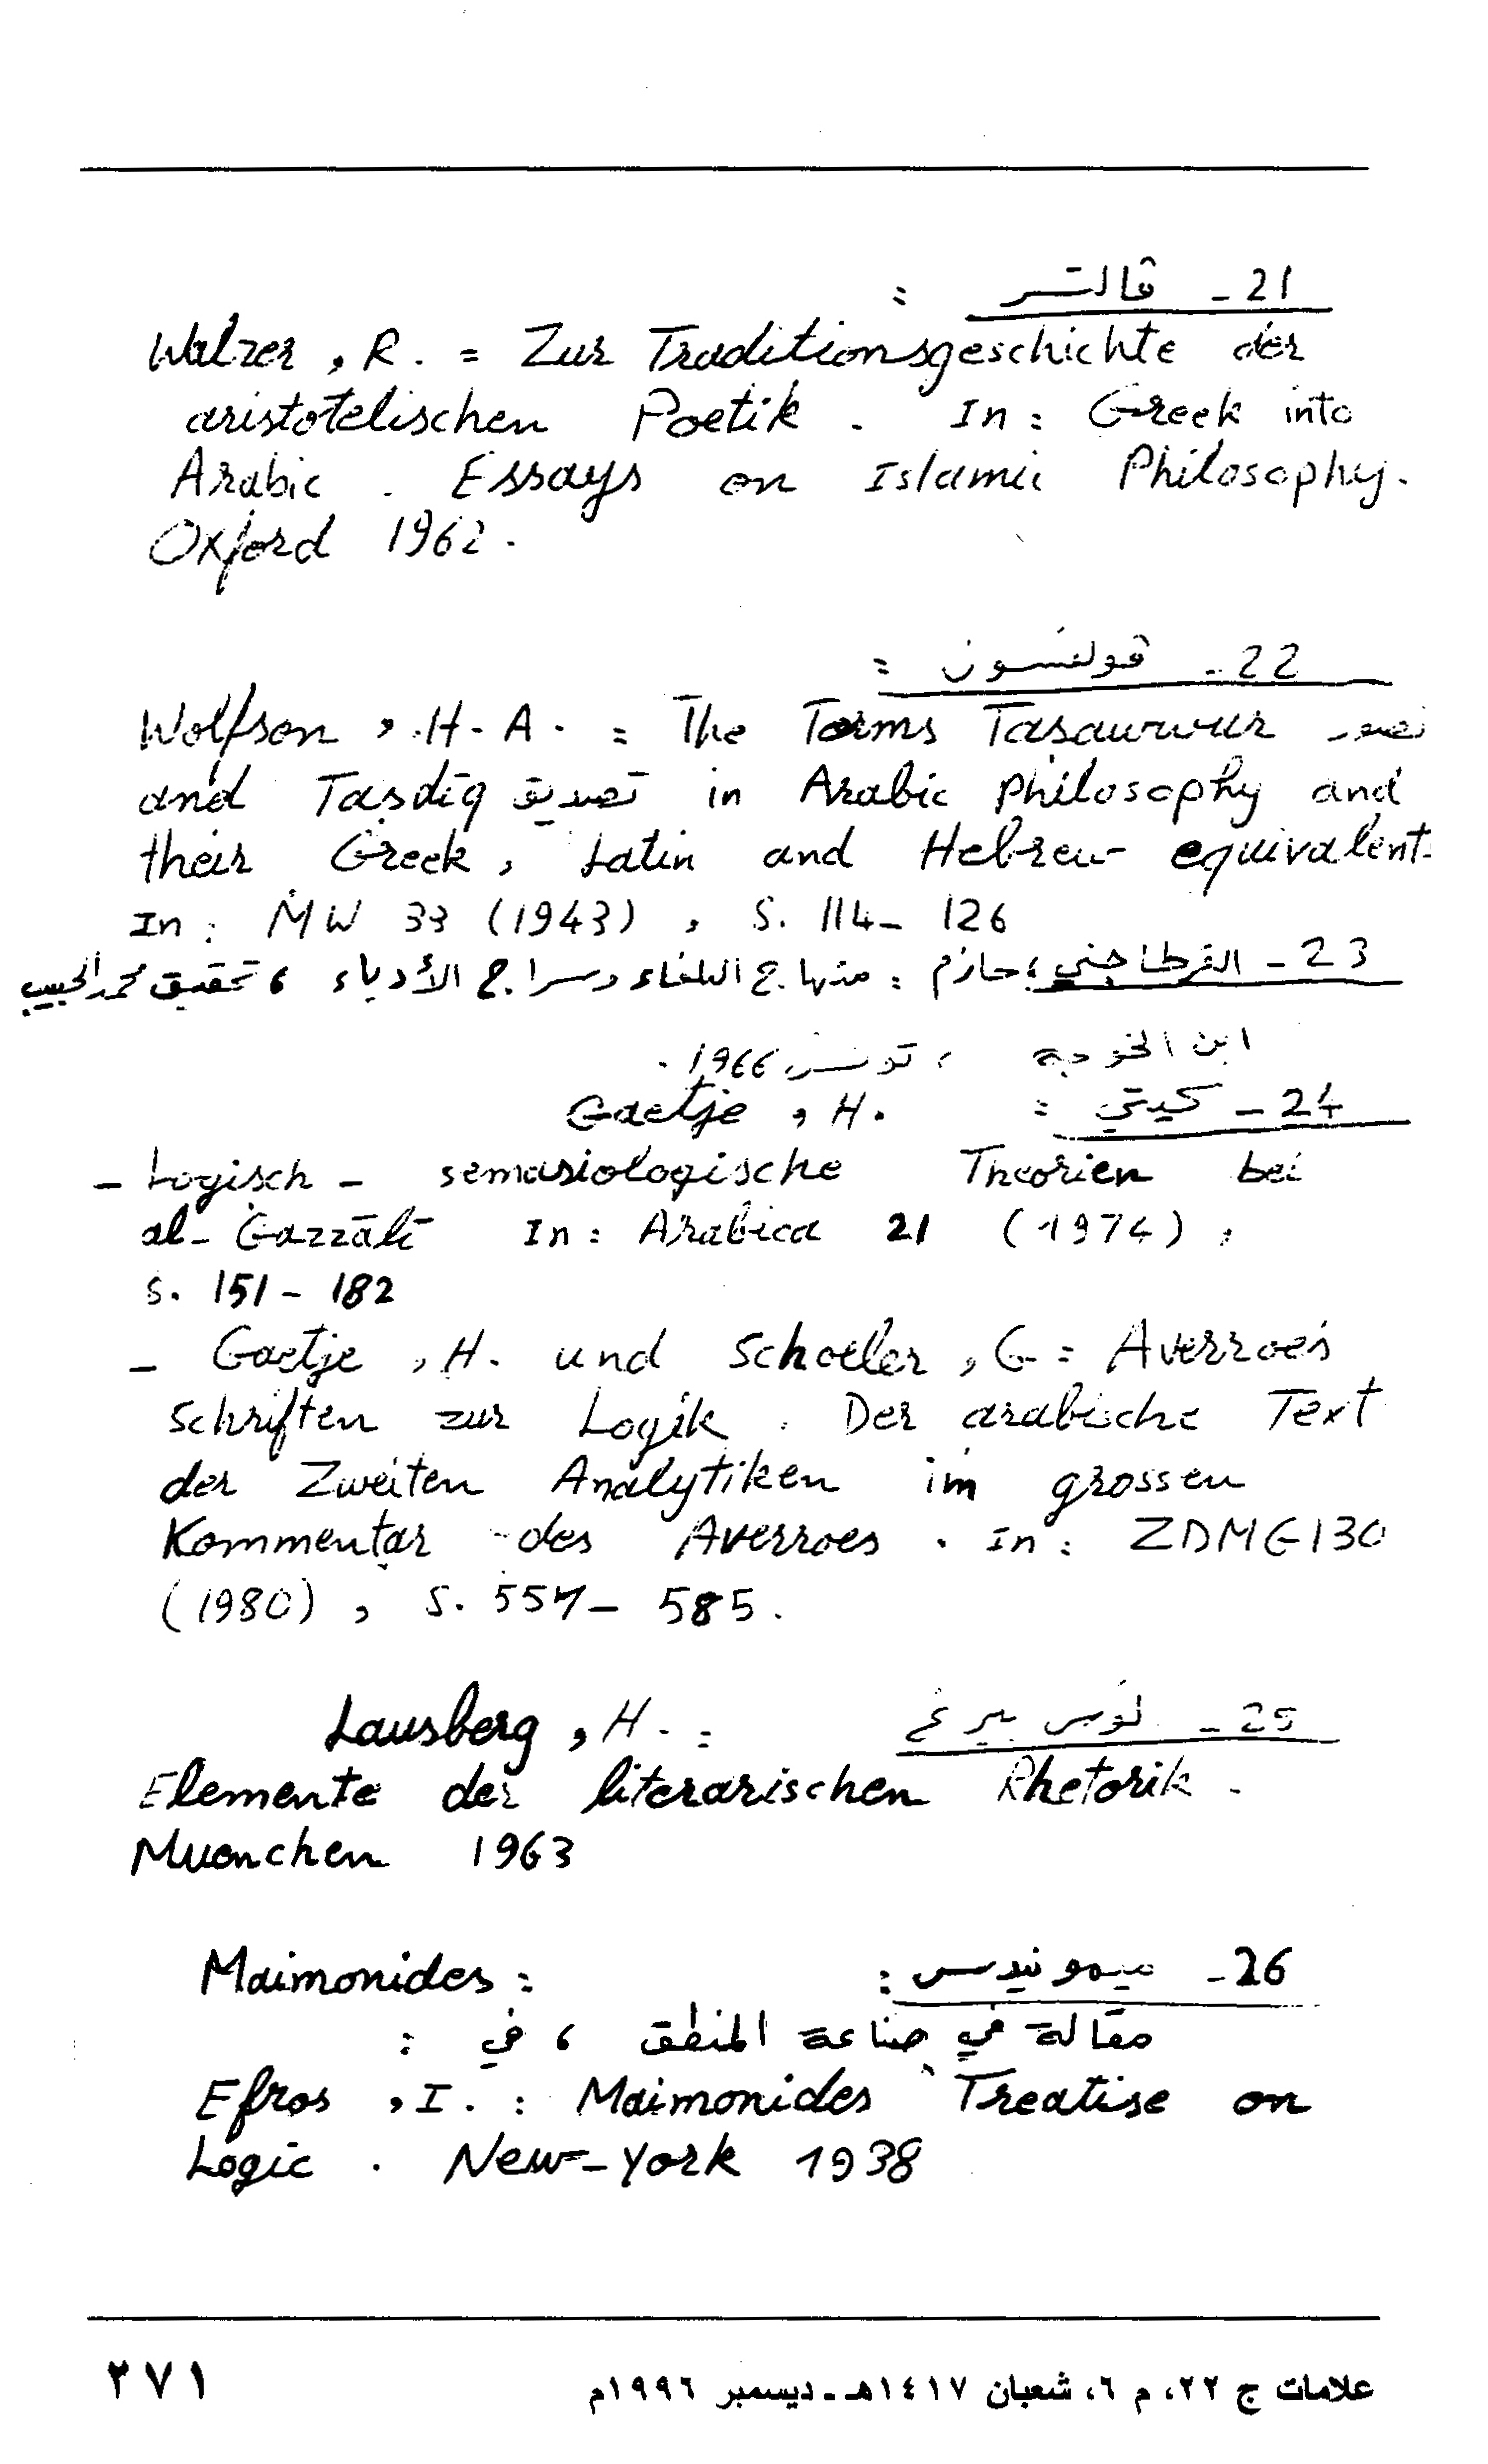 21 - ڤالتسر :
Walzer, R. = Zur Traditionsgeschichte der
aristotelischen Poetik. In: Greek into
Arabic. Essays on Islamic Philosophy.
Oxford 1962.
22 - ڤولفسون :
Wolfson, H. A. = The Terms Tasawwur
and Taṣdīq تصديق in Arabic Philosophy and
their Greek, Latin and Hebrew equivalent
In: MW 33 (1943), S. 114-126
23 - القرطاجني، حازم : منهاج البلغاء وسراج الأدباء ، تحقيق محمد الحبيب
ابن الخوجة ، تونس 1966 .
24 - كيتي : Gaetje, H.
- Logisch - semasiologische Theorien bei
al-Ġazzālī In: Arabica 21 (1974),
S. 151-182
- Gaetje, H. und Schoeler, G = Averroes
Schriften zur Logik. Der arabische Text
der Zweiten Analytiken im grossen
Kommentar des Averroes. In: ZDMG 130
(1980), S. 557-585.
25 - لوس بيرغ Lausberg, H. :
Elemente der literarischen Rhetorik.
Muenchen 1963
26 - ميمونيدس : Maimonides :
مقالة في صناعة المنطق ، في :
Efros, I. : Maimonides' Treatise on
Logic. New-York 1938
علامات ج ٢٢، م ٦، شعبان ١٤١٧هـ - ديسمبر ١٩٩٦م
٢٧١